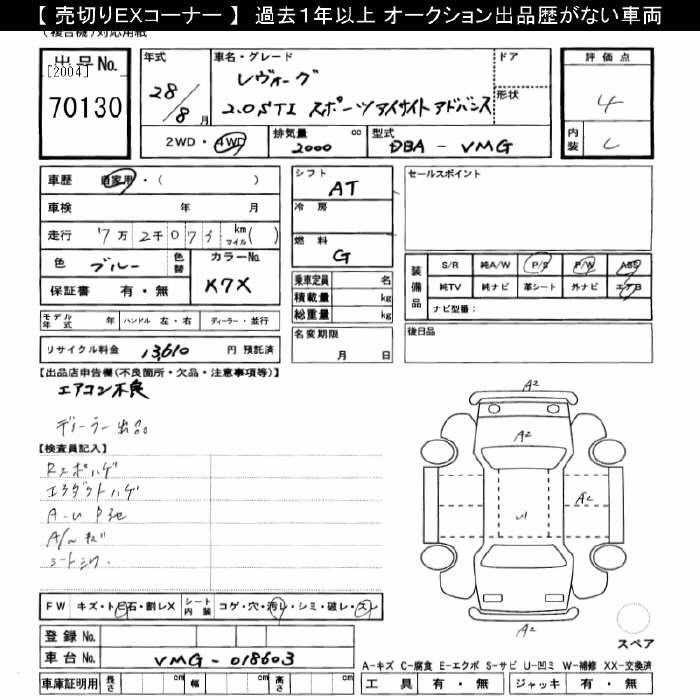 【 売切りEXコーナー 】 過去1年以上 オークション出品歴がない車両
(複合機)対応用紙
出品No.
[2004]
70130
年式
28/8月
車名・グレード
レヴォーグ
2.0STI スポーツアイサイト アドバンス
ドア
形状
評価点
4
内装
C
2WD・4WD
排気量 cc
2000
型式
DBA - VMG
車歴 自家用・( )
車検 年 月
走行 7万2千073 km マイル( )
色 ブルー 色替
カラーNo.
K7X
保証書 有・無
シフト
AT
冷房
燃料
G
乗車定員 名
積載量 kg
総重量 kg
セールスポイント
装備品
S/R 純A/W P/S P/W ABS
純TV 純ナビ 革シート 外ナビ エアB
ナビ型番:
モデル年式 年 ハンドル 左・右 ディーラー・並行
リサイクル料金 13,610 円 預託済
名変期限
月 日
後日品
【出品店申告欄(不良箇所・欠品・注意事項等)】
エアコン不良
ディーラー出品
【検査員記入】
Rスポハゲ
エアダクトハゲ
A-U
A/W キズ
シートシワ
A2
A2
A2
U1
A2
FW キズ・トビ石・割レX シート内装 コゲ・穴・汚レ・シミ・破レ・スレ
登録No.
車台No. VMG-018603
車庫証明用 長さ cm 幅 cm 高さ cm
スペア
A-キズ C-腐食 E-エクボ S-サビ U-凹ミ W-補修 XX-交換済
工具 有・無 ジャッキ 有・無